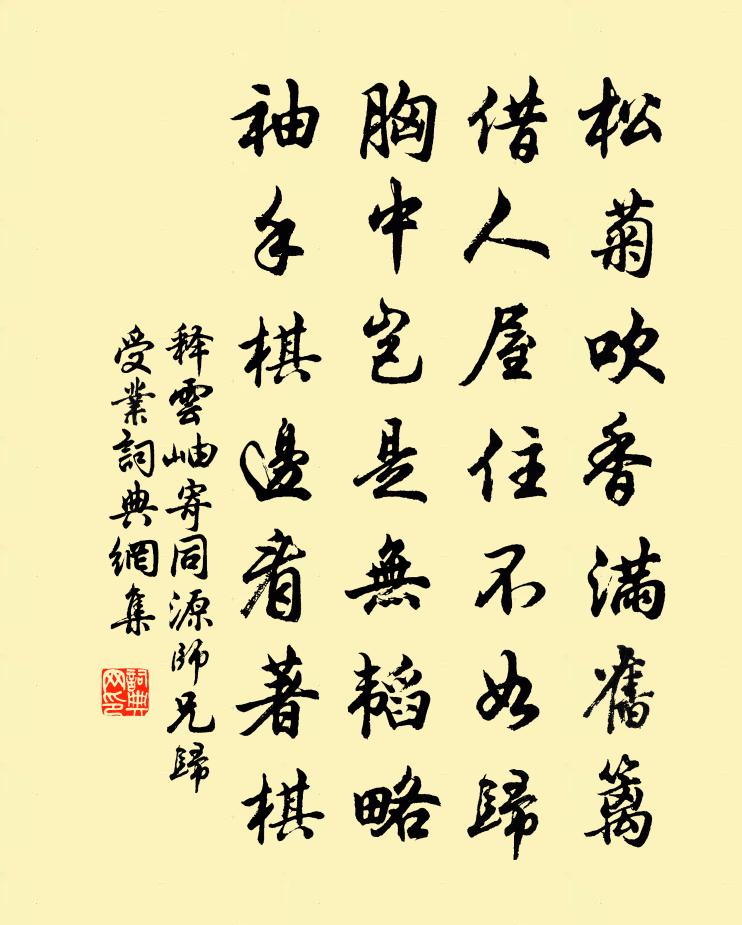 松菊吹香满舊篱
借人屋住不如歸
胸中岂是無韬略
袖手棋邊看著棋
释雲岫寄同源師兄歸
受業詞典網集
詞典网印